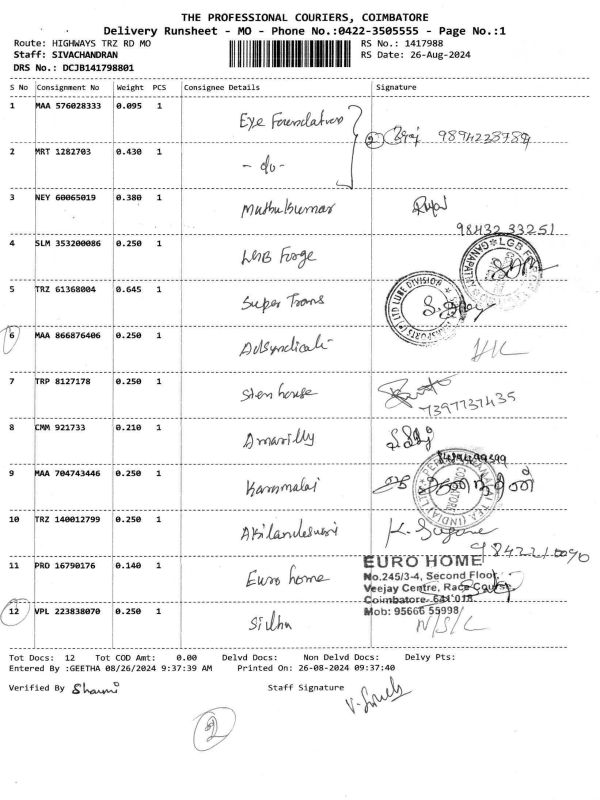 THE PROFESSIONAL COURIERS, COIMBATORE
Delivery Runsheet - MO - Phone No.:0422-3505555 - Page No.:1
Route: HIGHWAYS TRZ RD MO RS No.: 1417988
Staff: SIVACHANDRAN RS Date: 26-Aug-2024
DRS No.: DCJB141798801
S No Consignment No Weight PCS Consignee Details Signature
1 MAA 576028333 0.095 1 Eye Foundation
2 MRT 1282703 0.430 1 - do -
3 NEY 60065019 0.380 1 Muthukumar
98432 33251
4 SLM 353200086 0.250 1 LGB Forge
5 TRZ 61368004 0.645 1 Super Trans
6 MAA 866876406 0.250 1 Adsyndicate
7 TRP 8127178 0.250 1 Sten house
7397737435
8 CMM 921733 0.210 1 Amarilly
9 MAA 704743446 0.250 1 Kannmalai
10 TRZ 140012799 0.250 1 Akilandeswari
11 PRO 16790176 0.140 1 Euro home
EURO HOME
No.245/3-4, Second Floor,
Veejay Centre, Race Course,
Coimbatore- 641 018.
Mob: 95666 55998
12 VPL 223838070 0.250 1 Sidhu N/S/L
Tot Docs: 12 Tot COD Amt: 0.00 Delvd Docs: Non Delvd Docs: Delvy Pts:
Entered By :GEETHA 08/26/2024 9:37:39 AM Printed On: 26-08-2024 09:37:40
Verified By Staff Signature
2